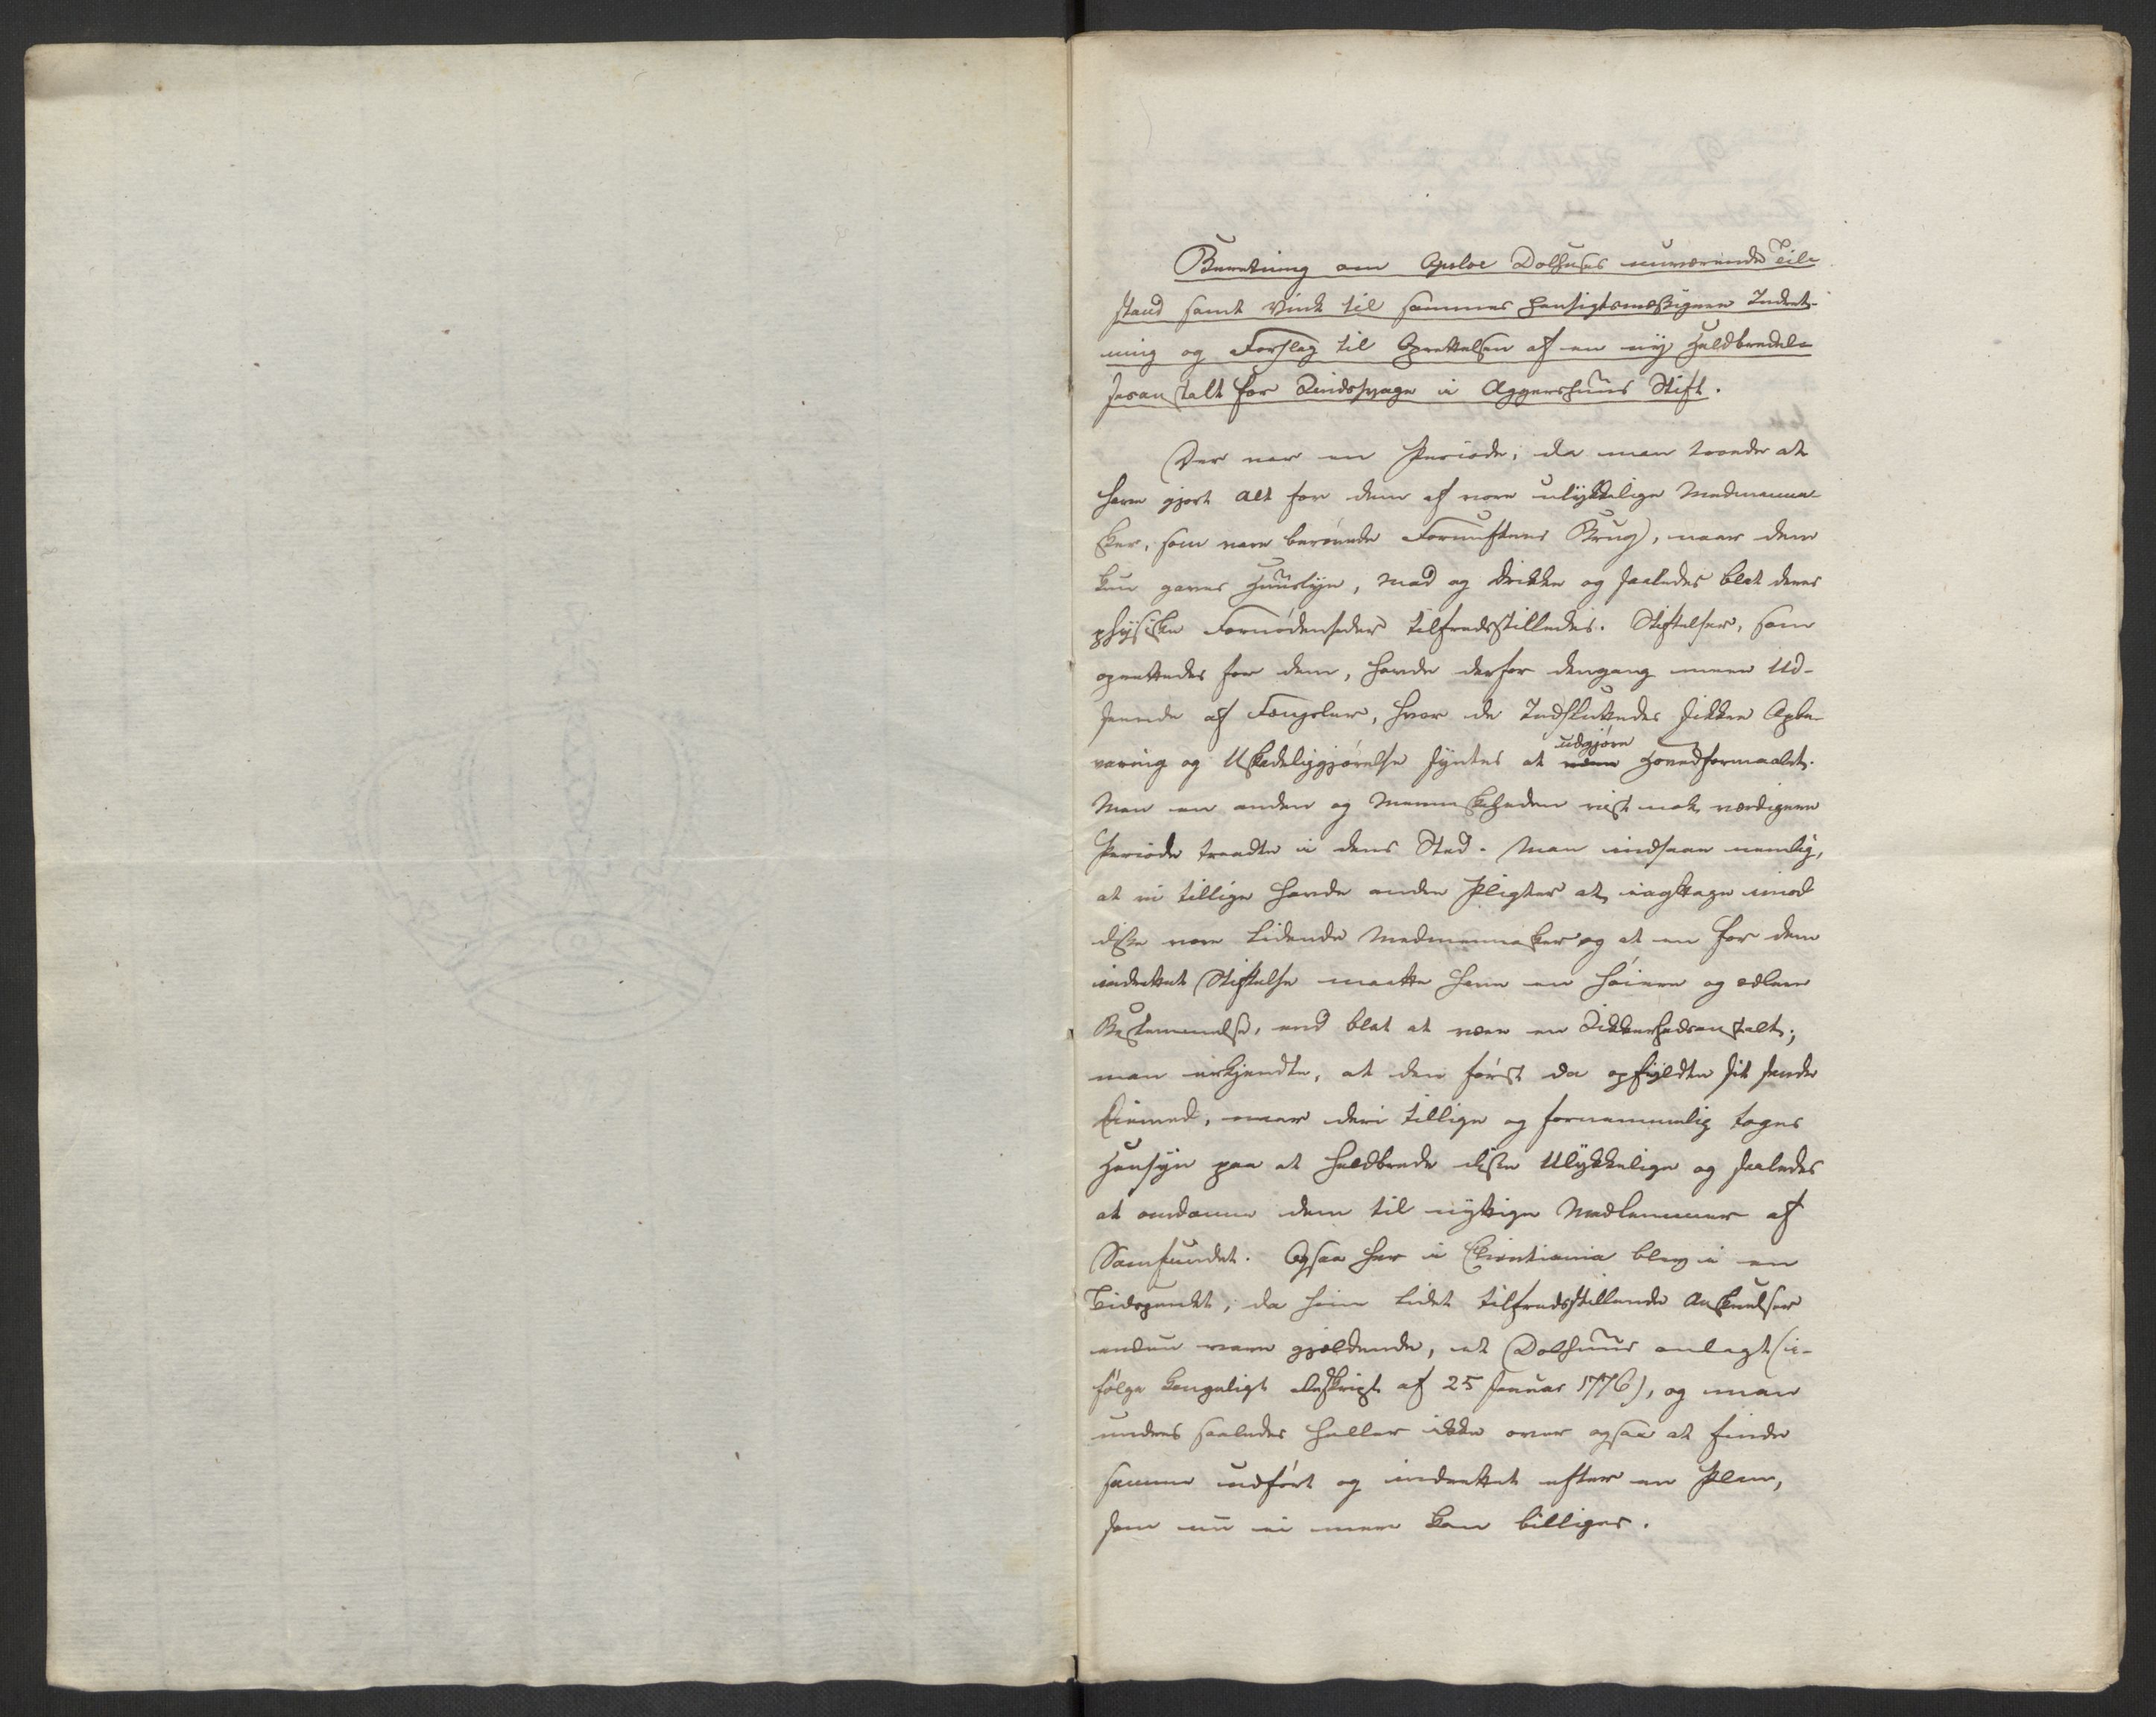 Beretning om Opsloe Dolhuses nuværende Til-
stand samt Vink til sammes hensigtsmæssigere Indret-
ning og Forslag til Oprettelsen af en ny Helbredel-
sesanstalt for Sindssvage i Aggershuus Stift.
Der var en Periode, da man troede at
have gjort Alt for dem af vore ulykkelige Medmenne-
sker, som vare berøvede Fornuftens Brug, naar dem
kun gaves Huuslye, Mad og Drikke og saaledes blot deres
physiske Fornødenheder tilfredsstilledes. Stiftelser, som
oprettedes for dem, havde derfor dengang mere Ud-
seende af Fængsler, hvor de Indsluttedes sikkre Opbe-
varing og Uskadeliggjørelse syntes at være udgjøre Hovedformaalet.
Men en anden og Menneskeheden vist nok værdigere
Periode traadte i dens Sted. Man indsaae nemlig,
at vi tillige havde andre Pligter at iagttage imod
disse vore lidende Medmennesker og at en for dem
indrettet Stiftelse maatte have en høiere og ædlere
Bestemmelse, end blot at være en Sikkerhedsanstalt;
man erkjendte, at den først da opfyldte sit sande
Øiemed, naar deri tillige og fornemmelig toges
Hensyn paa at helbrede disse Ulykkelige og saaledes
at omdanne dem til nyttige Medlemmer af
Samfundet. Ogsaa her i Christiania blev i en
Tidspunkt, da hine lidet tilfredsstillende Anskuelser
endnu vare gjældende, et Dolhuus anlagt (i-
følge kongeligt Reskript af 25 Januar 1776), og man
undres saaledes heller ikke over ogsaa at finde
samme udført og indrettet efter en Plan,
som nu ei mere kan billiges.